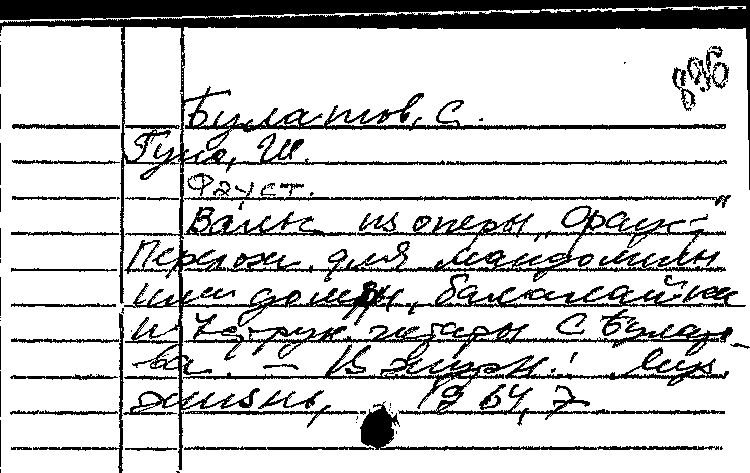 896
Булатов, С.
Гуно, Ш.
Фауст.
Вальс из оперы „Фауст"
Перелож. для мандолины
или домры, балалайки
и 7-струн. гитары С. Булато-
ва. — В журн.: Муз.
жизнь, 1964, 7